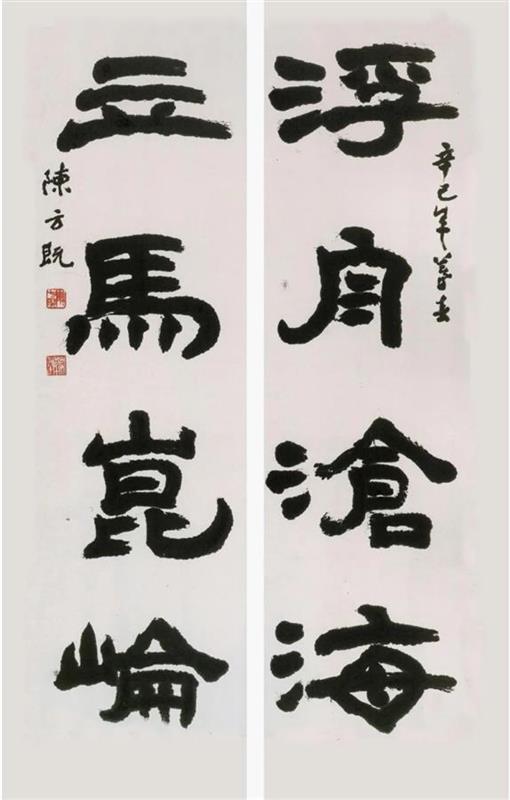 辛巳年暮春
浮舟滄海
立馬崑崘
陳方既